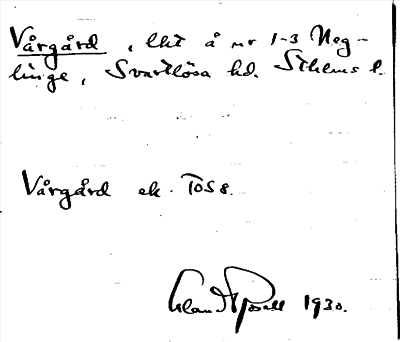 Vårgård, lht å nr 1-3 Neg-
linge, Svartlösa hd. Sthlms l.
Vårgård ek. TOS 8.
1930.